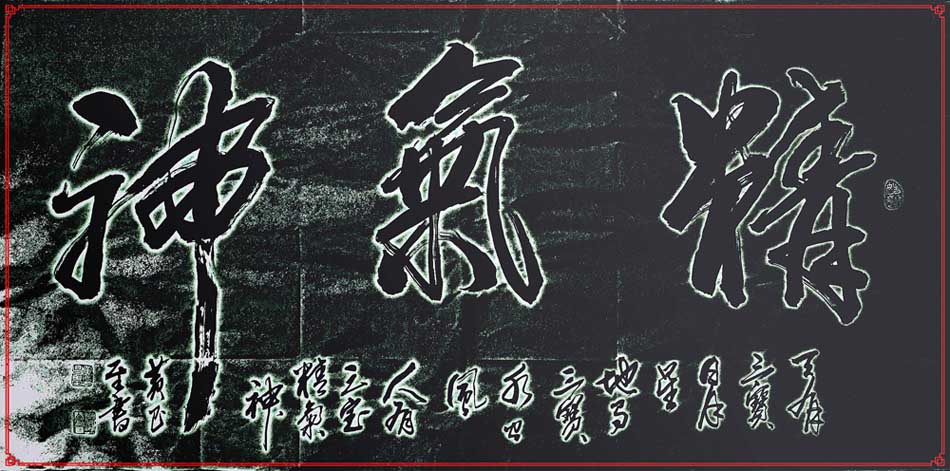 精氣神
天有
三寶
日月
星
地有
三寶
水火
風
人有
三宝
精氣
神
黄
至書